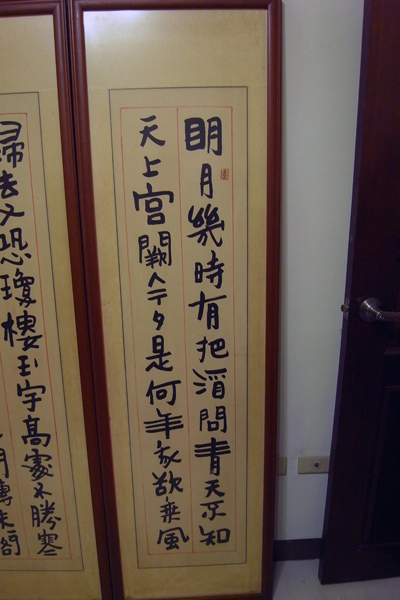 明月幾時有把酒問青天不知
天上宮闕今夕是何年我欲乘風
歸去又恐瓊樓玉宇高處不勝寒
轉朱閣